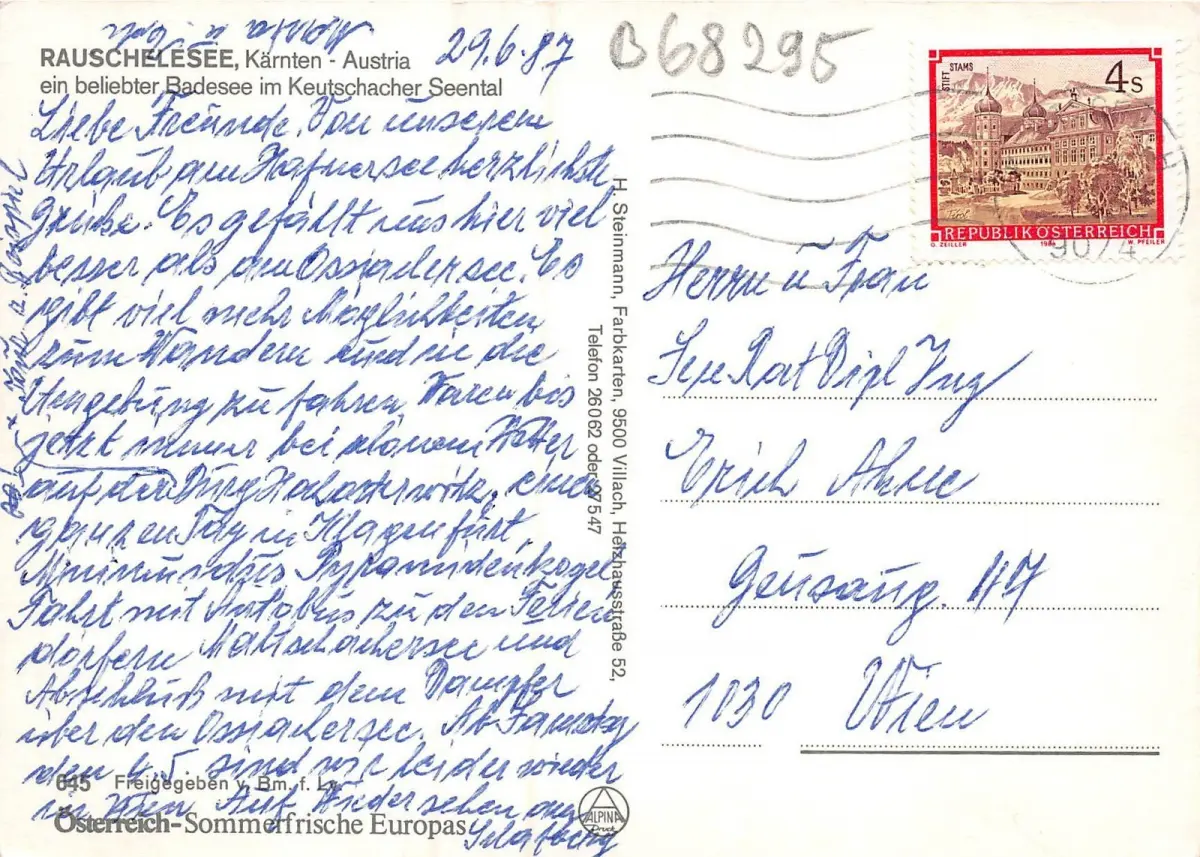 29.6.87
B68295
RAUSCHELESEE, Kärnten - Austria
ein beliebter Badesee im Keutschacher Seental
Liebe Freunde. Von unserem
Urlaub am Hafnersee herzlichste
Grüße. Es gefällt uns hier viel
besser als am Ossiachersee. Es
gibt viel mehr Möglichkeiten
zum Wandern und in die
Umgebung zu fahren. Waren bis
jetzt immer bei schönem Wetter
auf der Burg Hochosterwitz, einen
ganzen Tag in Klagenfurt,
Minimundus Pyramidenkogel
Fahrt mit Autobus zu den Ferien
dörfern und
Abschluß mit dem Dampfer
über den Ossiachersee. Ab Samstag
den sind wir leider wieder
in Wien. Auf Wiedersehen am
645 Freigegeben v. Bm. f. Lv.
Österreich-Sommerfrische Europas
ALPINA
Druck
H. Steinmann, Farbkarten, 9500 Villach, Heizhausstraße 52,
Telefon 26062 oder 27547
STIFT STAMS
4 S
REPUBLIK ÖSTERREICH
O. ZEILLER 1986 W. PFEILER
9074
Herrn u Frau
Rat Dipl Ing
Erich
Geusaug. 47
1030 Wien